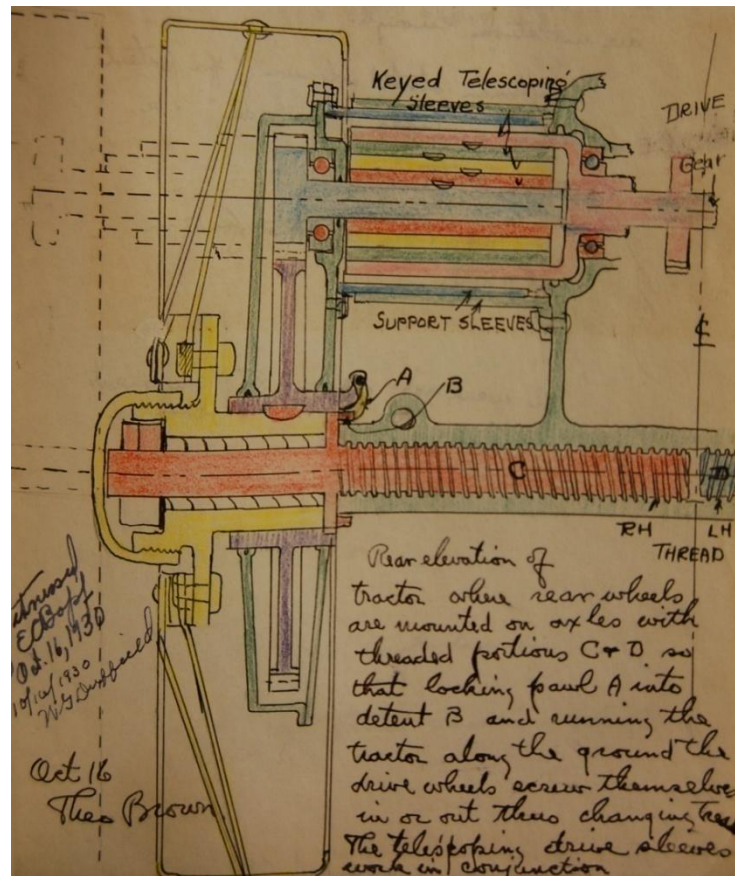 Keyed Telescoping
Sleeves
DRIVE
Gear
SUPPORT SLEEVES
A
B
C
D
RH
LH
THREAD
Rear elevation of
tractor where rear wheels
are mounted on axles with
threaded portions C & D so
that locking pawl A into
detent B and running the
tractor along the ground the
drive wheels screw themselves
in or out thus changing tread
The telescoping drive sleeves
work in conjunction
Witnessed
Oct. 16, 1930
10/16/1930
Oct 16
Theo Brown